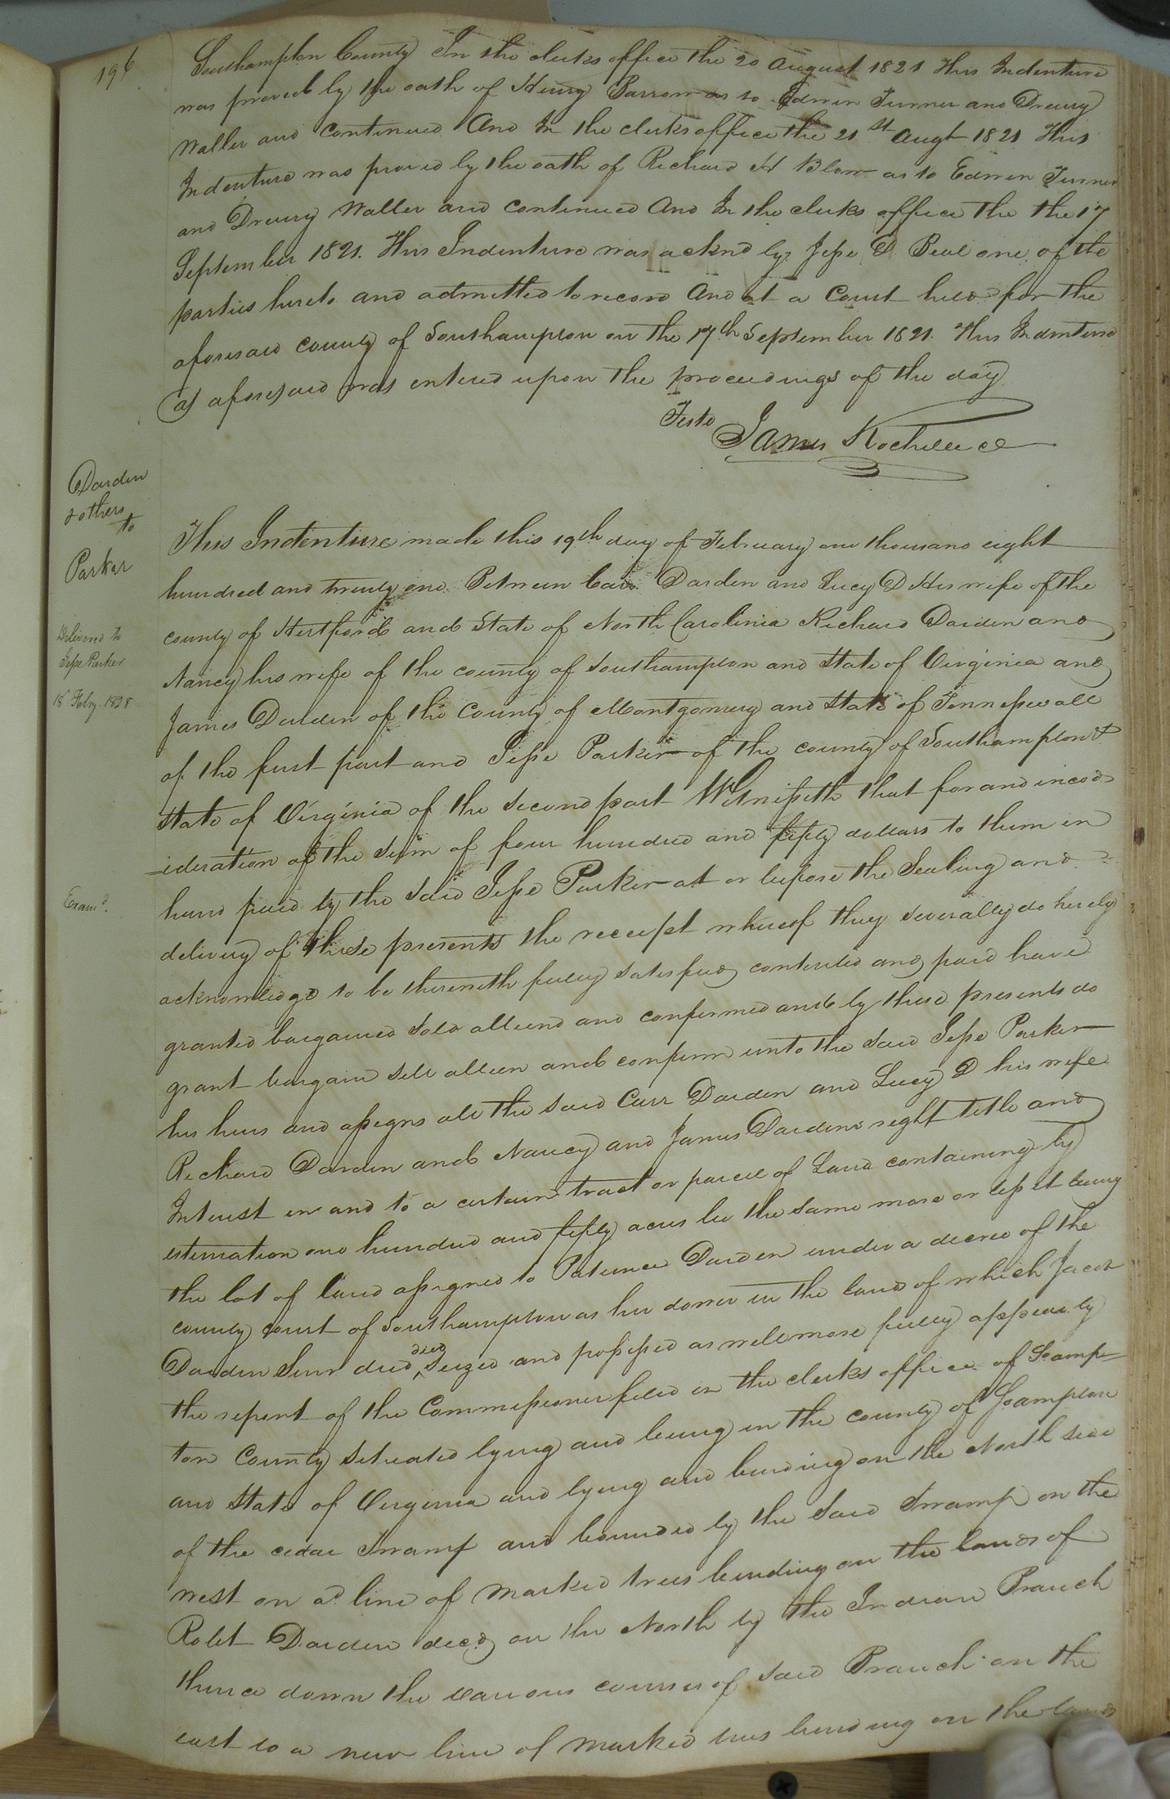 196
Southampton County In the clerks office the 20 August 1821 This Indenture
was proved by the oath of Henry Barrow as to Edwin Turner and Drewry
Waller and continued And In the clerks office the 21st Augt 1821 This
Indenture was proved by the oath of Richard H Blow as to Edwin Turner
and Drewry Waller and continued And In the clerks office the the 17
September 1821. This Indenture was acknd by Jesse D Beal one of the
parties hereto and admitted to record And at a Court held for the
aforesaid county of Southampton on the 17th September 1821. This Indenture
as aforesaid was entered upon the proceedings of the day
Teste James Rochelle cl
Darden
& others
to
Parker
Delivered to
Jesse Parker
18 Feby 1828
Examd.
This Indenture made this 19th day of February one thousand eight
hundred and twenty one Between Carr Darden and Lucy D His wife of the
county of Hertford and State of North Carolinia Richard Darden and
Nancy his wife of the county of Southampton and State of Virginia and
James Darden of the County of Montgomery and State of Tennessee all
of the first part and Jesse Parker of the county of Southampton &
State of Virginia of the Second part Witnesseth that for and in cons
ideration of the Sum of four hundred and fifty dollars to them in
hand paid by the said Jesse Parker at or before the Sealing and
delivery of these presents the receipt whereof they severally do hereby
acknowledge to be therewith fully satisfied contented and paid have
granted bargained sold aliend and confirmed and by these presents do
grant bargain sell alien and confirm unto the said Jesse Parker
his heirs and assigns all the said Carr Darden and Lucy D his wife
Richard Darden and Nancy and James Dardens right title and
Interest in and to a certain tract or parcel of Land containing by
estimation one hundred and fifty acres be the same more or less it being
the lot of land assigned to Patience Darden under a decree of the
county court of Southampton as her dower in the land of which Jacob
Darden Senr decd died Seized and possessed as will more fully appear by
the report of the Commissioners filed in the clerks office of Soamp
ton County situated lying and being in the county of Soampton
and State of Virginia and lying and binding on the North side
of the cedar Swamp and bounded by the said Swamp on the
west on a line of marked trees binding on the lands of
Robt Darden decd on the North by the Indian Branch
thence down the various courses of said Branch on the
east to a new line of marked trees binding on the lands